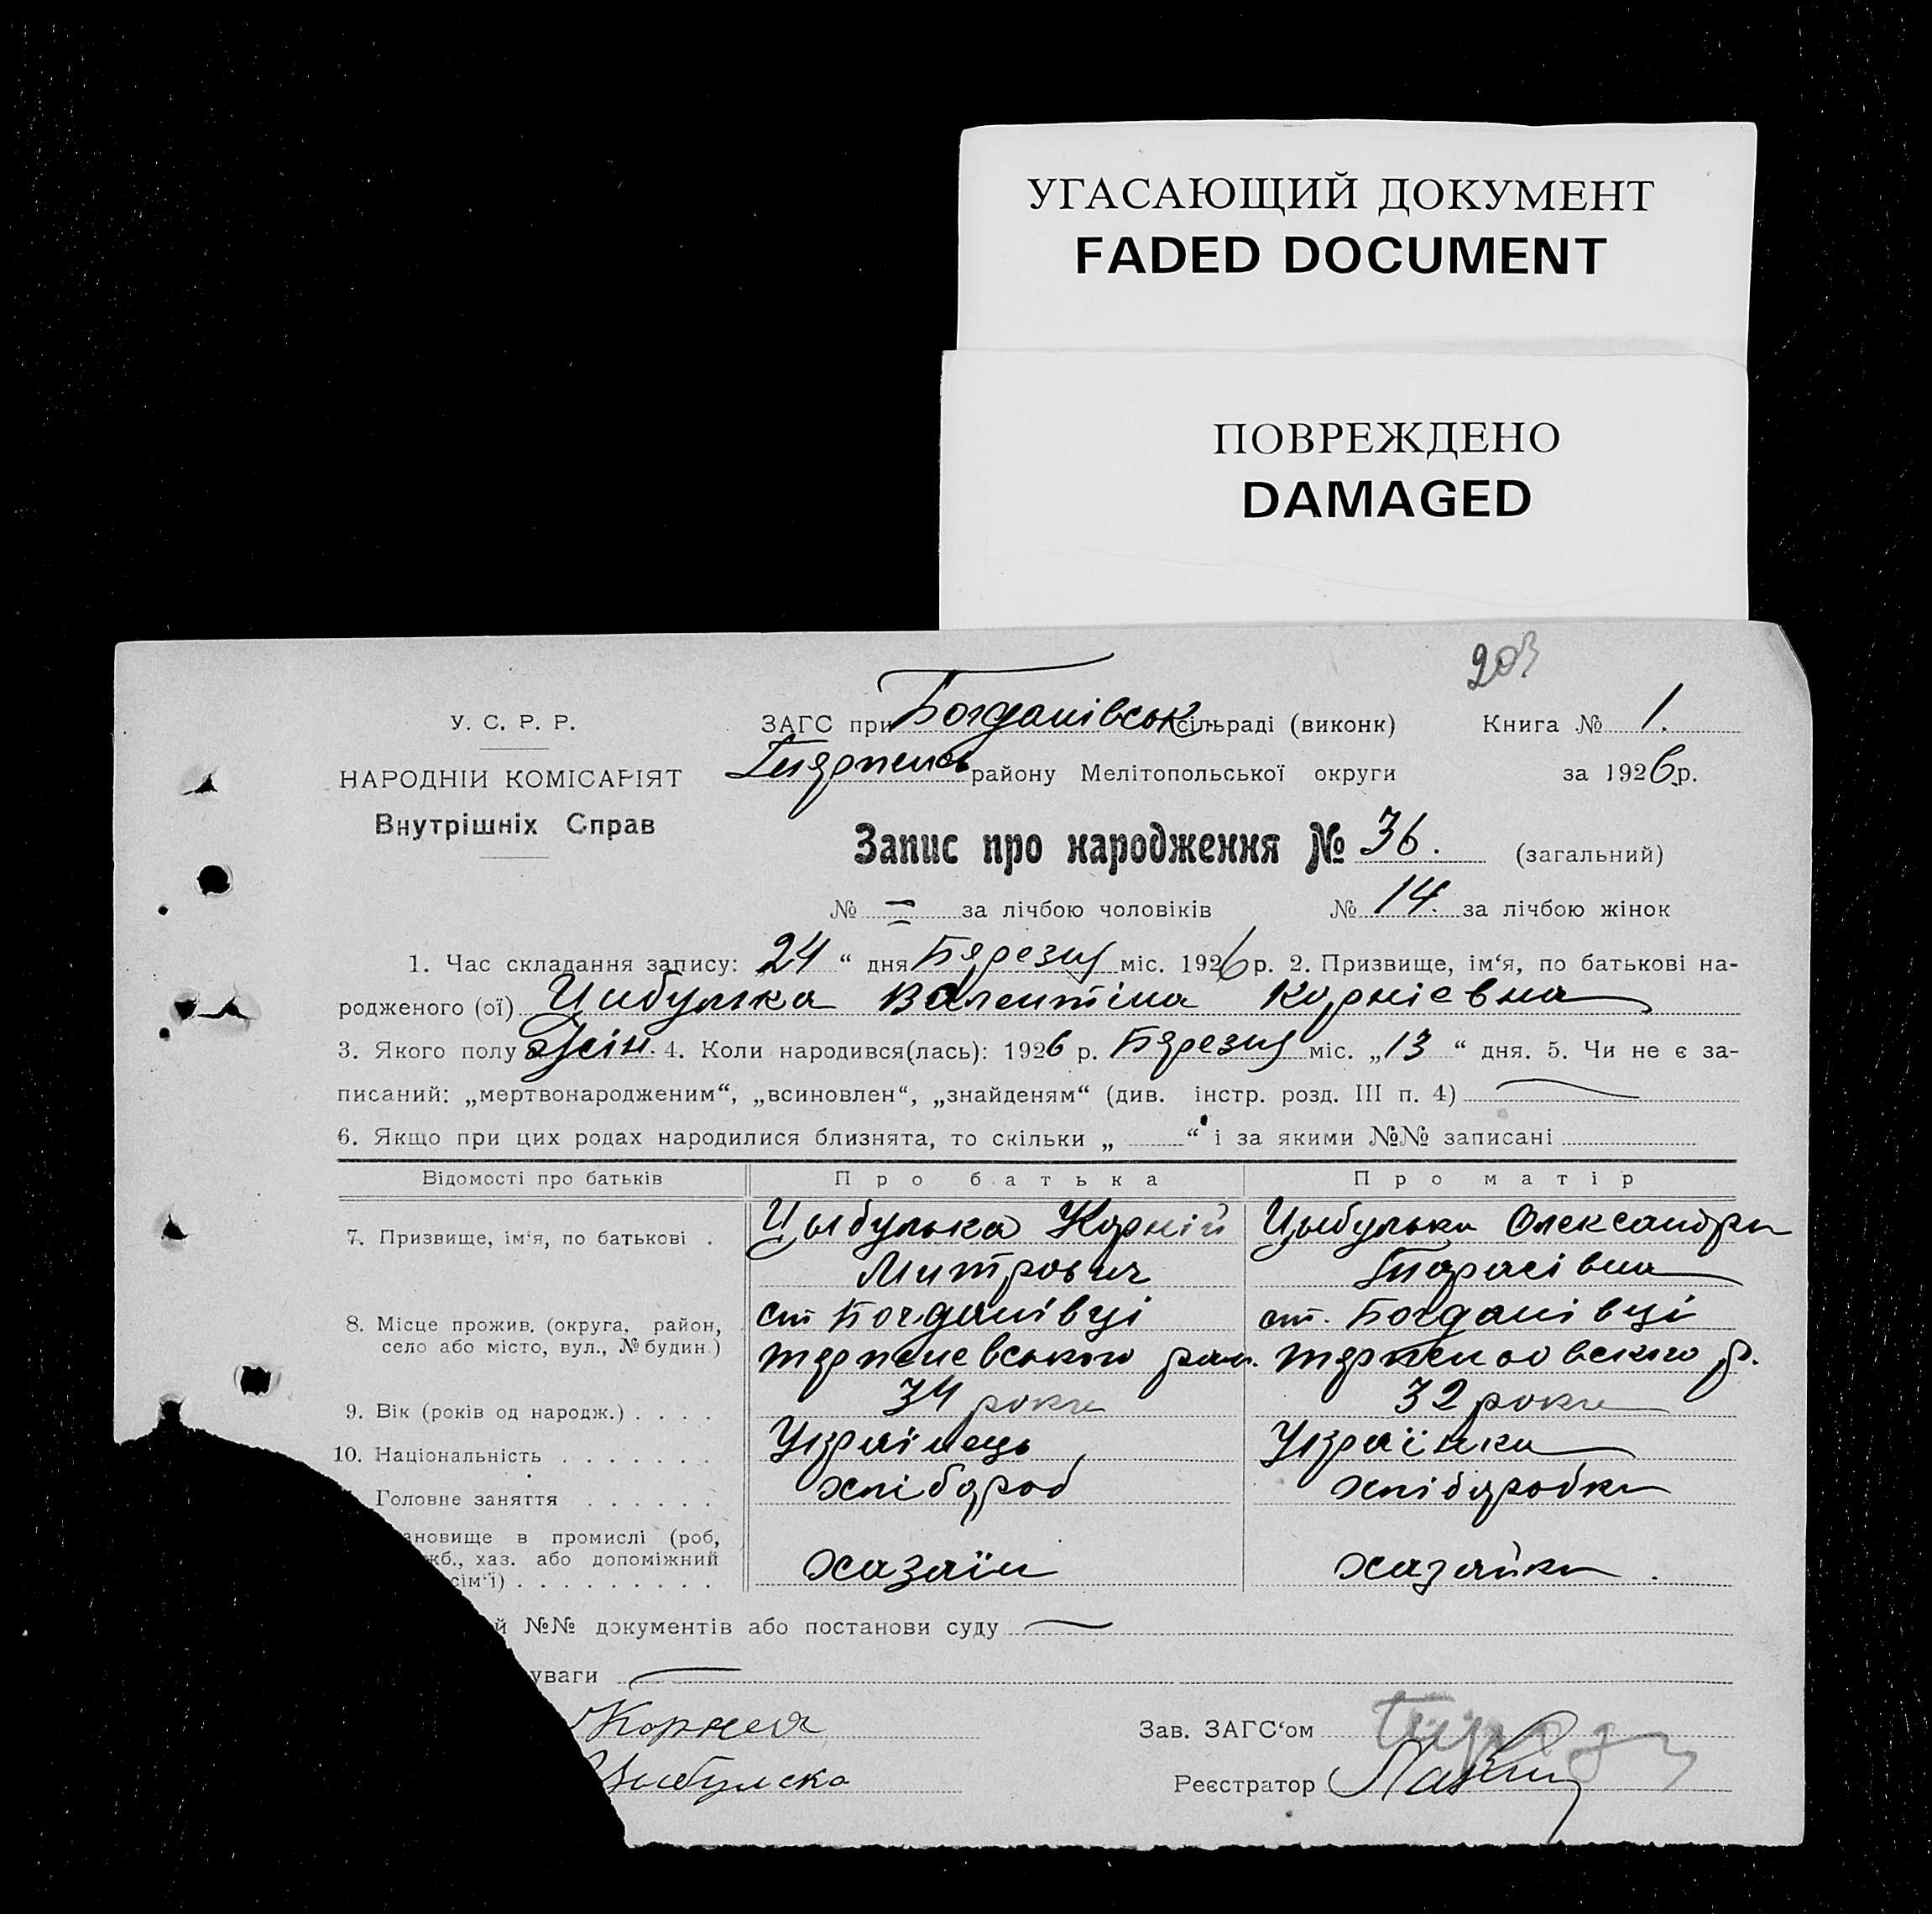 УГАСАЮЩИЙ ДОКУМЕНТ
FADED DOCUMENT
ПОВРЕЖДЕНО
DAMAGED
203
У. С. Р. Р.
ЗАГС при Богданівськ сільраді (виконк)
Книга № 1.
НАРОДНІЙ КОМІСАРІЯТ
району Мелітопольської округи
за 1926 р.
Внутрішніх Справ
Запис про народження № 36. (загальний)
№ — за лічбою чоловіків № 14. за лічбою жінок
1. Час складання запису: 24 “ дня Бярезня міс. 1926 р. 2. Призвище, ім‘я, по батькові на-
родженого (ої) Цибулька Валентіна Корніевна
3. Якого полу жін. 4. Коли народився(лась): 1926 р. Бярезня міс. „13 “ дня. 5. Чи не є за-
писаний: „мертвонародженим“, „всиновлен“, „знайденям“ (див. інстр. розд. III п. 4) —
6. Якщо при цих родах народилися близнята, то скільки „ “ і за якими №№ записані
Відомості про батьків
Про батька
Про матір
7. Призвище, ім‘я, по батькові .
Цыбулька Корній
Цыбулька Олександра
Митрович
Тарасівна
8. Місце прожив. (округа, район,
село або місто, вул., № будин.)
ст Богданівці
ст. Богданівці
тярпеневського рай.
р.
9. Вік (років од народж.) . . . .
34 роки
32 роки
10. Національність . . . . . . .
Українець
Українка
Головне заняття . . . . . .
хлібороб
хліборобка
ановище в промислі (роб,
жб., хаз. або допоміжний
сім‘ї) . . . . . . . . .
хазаїн
хазяйка .
й №№ документів або постанови суду —
уваги —
Корнея
Зав. ЗАГС‘ом
Реєстратор